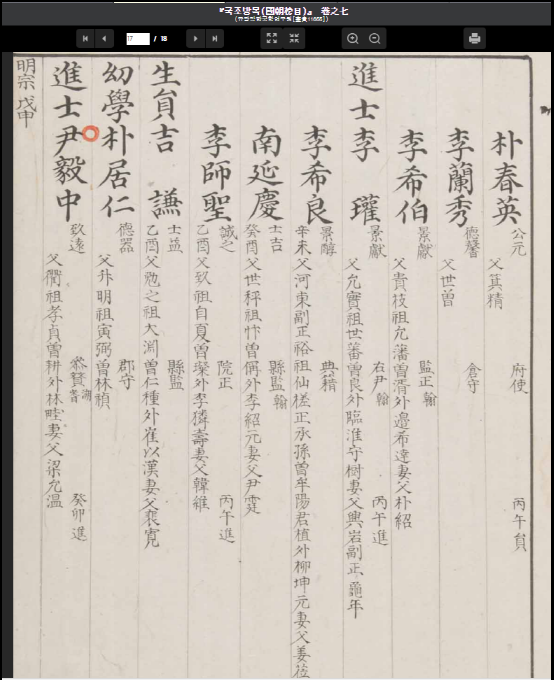 『국조방목(國朝榜目)』 卷之七
17 / 18
朴春英 公元 父箕精 府使 丙午貟
李蘭秀 德馨 父世曾 倉守
李希伯 景獻 父貴枝祖允蕃曽 外邉希達妻父朴紹 監正 翰
進士李 瓘 景獻 父允實祖世蕃曽良外臨淮守 妻父興岩副正龜年 右尹 翰 丙午進
李希良 景醇 辛未父河東副正裕祖仙槎正承孫曽牟陽君植外柳坤元妻父姜 典籍
南延慶 士吉 癸酉父世秤祖忭曽偁外李紹元妻父尹霆 縣監 翰
李師聖 誠之 乙酉父致祖自夏曽 外李獜壽妻父韓維 院正 丙午進
生貟吉 謙 士益 乙酉父勉之祖大淵曽仁種外崔以漢妻父裵寛 縣監
幼學朴居仁 德器 父升明祖寅弼曽林楨 郡守
進士尹毅中 致遠 父衢祖孝貞曽耕外林畦妻父梁允温 叅贊 湖 癸卯進
明宗 戊申